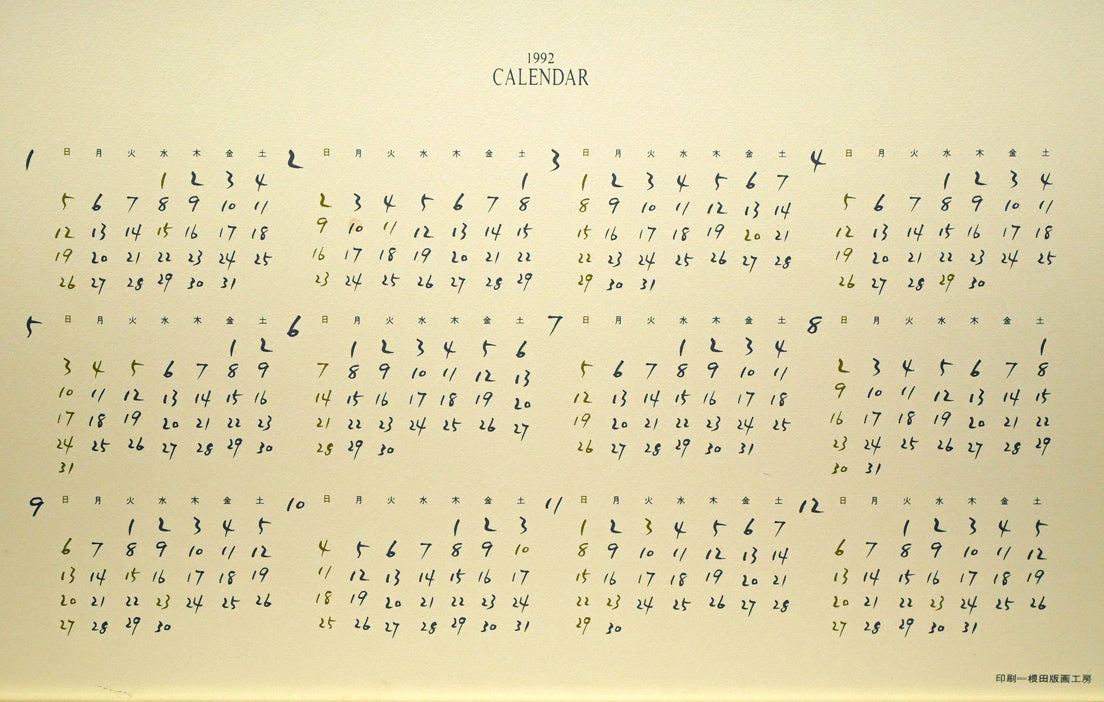 1992
CALENDAR
1
日 月 火 水 木 金 土
1 2 3 4
5 6 7 8 9 10 11
12 13 14 15 16 17 18
19 20 21 22 23 24 25
26 27 28 29 30 31
2
日 月 火 水 木 金 土
1
2 3 4 5 6 7 8
9 10 11 12 13 14 15
16 17 18 19 20 21 22
23 24 25 26 27 28 29
3
日 月 火 水 木 金 土
1 2 3 4 5 6 7
8 9 10 11 12 13 14
15 16 17 18 19 20 21
22 23 24 25 26 27 28
29 30 31
4
日 月 火 水 木 金 土
1 2 3 4
5 6 7 8 9 10 11
12 13 14 15 16 17 18
19 20 21 22 23 24 25
26 27 28 29 30
5
日 月 火 水 木 金 土
1 2
3 4 5 6 7 8 9
10 11 12 13 14 15 16
17 18 19 20 21 22 23
24 25 26 27 28 29 30
31
6
日 月 火 水 木 金 土
1 2 3 4 5 6
7 8 9 10 11 12 13
14 15 16 17 18 19 20
21 22 23 24 25 26 27
28 29 30
7
日 月 火 水 木 金 土
1 2 3 4
5 6 7 8 9 10 11
12 13 14 15 16 17 18
19 20 21 22 23 24 25
26 27 28 29 30 31
8
日 月 火 水 木 金 土
1
2 3 4 5 6 7 8
9 10 11 12 13 14 15
16 17 18 19 20 21 22
23 24 25 26 27 28 29
30 31
9
日 月 火 水 木 金 土
1 2 3 4 5
6 7 8 9 10 11 12
13 14 15 16 17 18 19
20 21 22 23 24 25 26
27 28 29 30
10
日 月 火 水 木 金 土
1 2 3
4 5 6 7 8 9 10
11 12 13 14 15 16 17
18 19 20 21 22 23 24
25 26 27 28 29 30 31
11
日 月 火 水 木 金 土
1 2 3 4 5 6 7
8 9 10 11 12 13 14
15 16 17 18 19 20 21
22 23 24 25 26 27 28
29 30
12
日 月 火 水 木 金 土
1 2 3 4 5
6 7 8 9 10 11 12
13 14 15 16 17 18 19
20 21 22 23 24 25 26
27 28 29 30 31
印刷＝根田版画工房